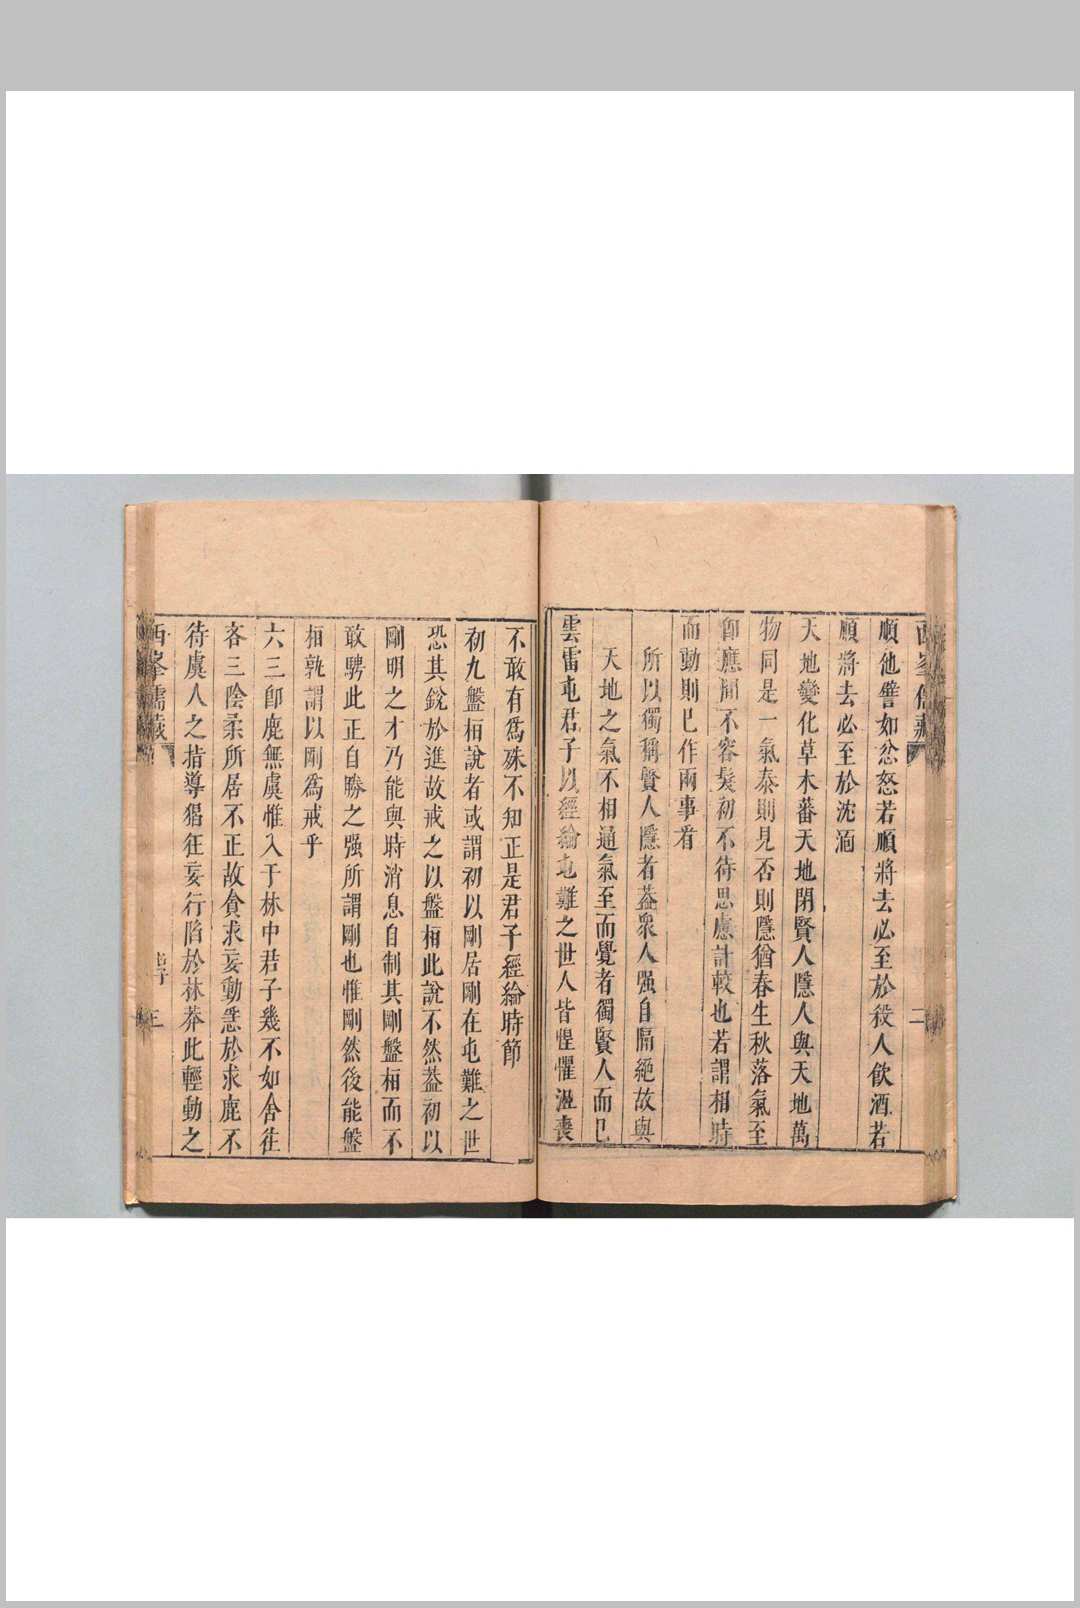 順他譬如忿怒若順將去必至於殺人飲酒若
順將去必至於沈湎
天地變化草木蕃天地閉賢人隱人與天地萬
物同是一氣泰則見否則隱猶春生秋落氣至
卽應間不容髮初不待思慮計較也若謂相時
而動則已作兩事看
所以獨稱賢人隱者葢衆人强自隔絕故與
天地之氣不相通氣至而覺者獨賢人而已
雲雷屯君子以經綸屯難之世人皆惶懼沮喪
不敢有爲殊不知正是君子經綸時節
初九盤桓說者或謂初以剛居剛在屯難之世
恐其銳於進故戒之以盤桓此說不然葢初以
剛明之才乃能與時消息自制其剛盤桓而不
敢騁此正自勝之强所謂剛也惟剛然後能盤
桓孰謂以剛爲戒乎
六三卽鹿無虞惟入于林中君子幾不如舍往
吝三陰柔所居不正故貪求妄動急於求鹿不
待虞人之指導猖狂妄行陷於林莽此輕動之
西峯儒藏
三
二